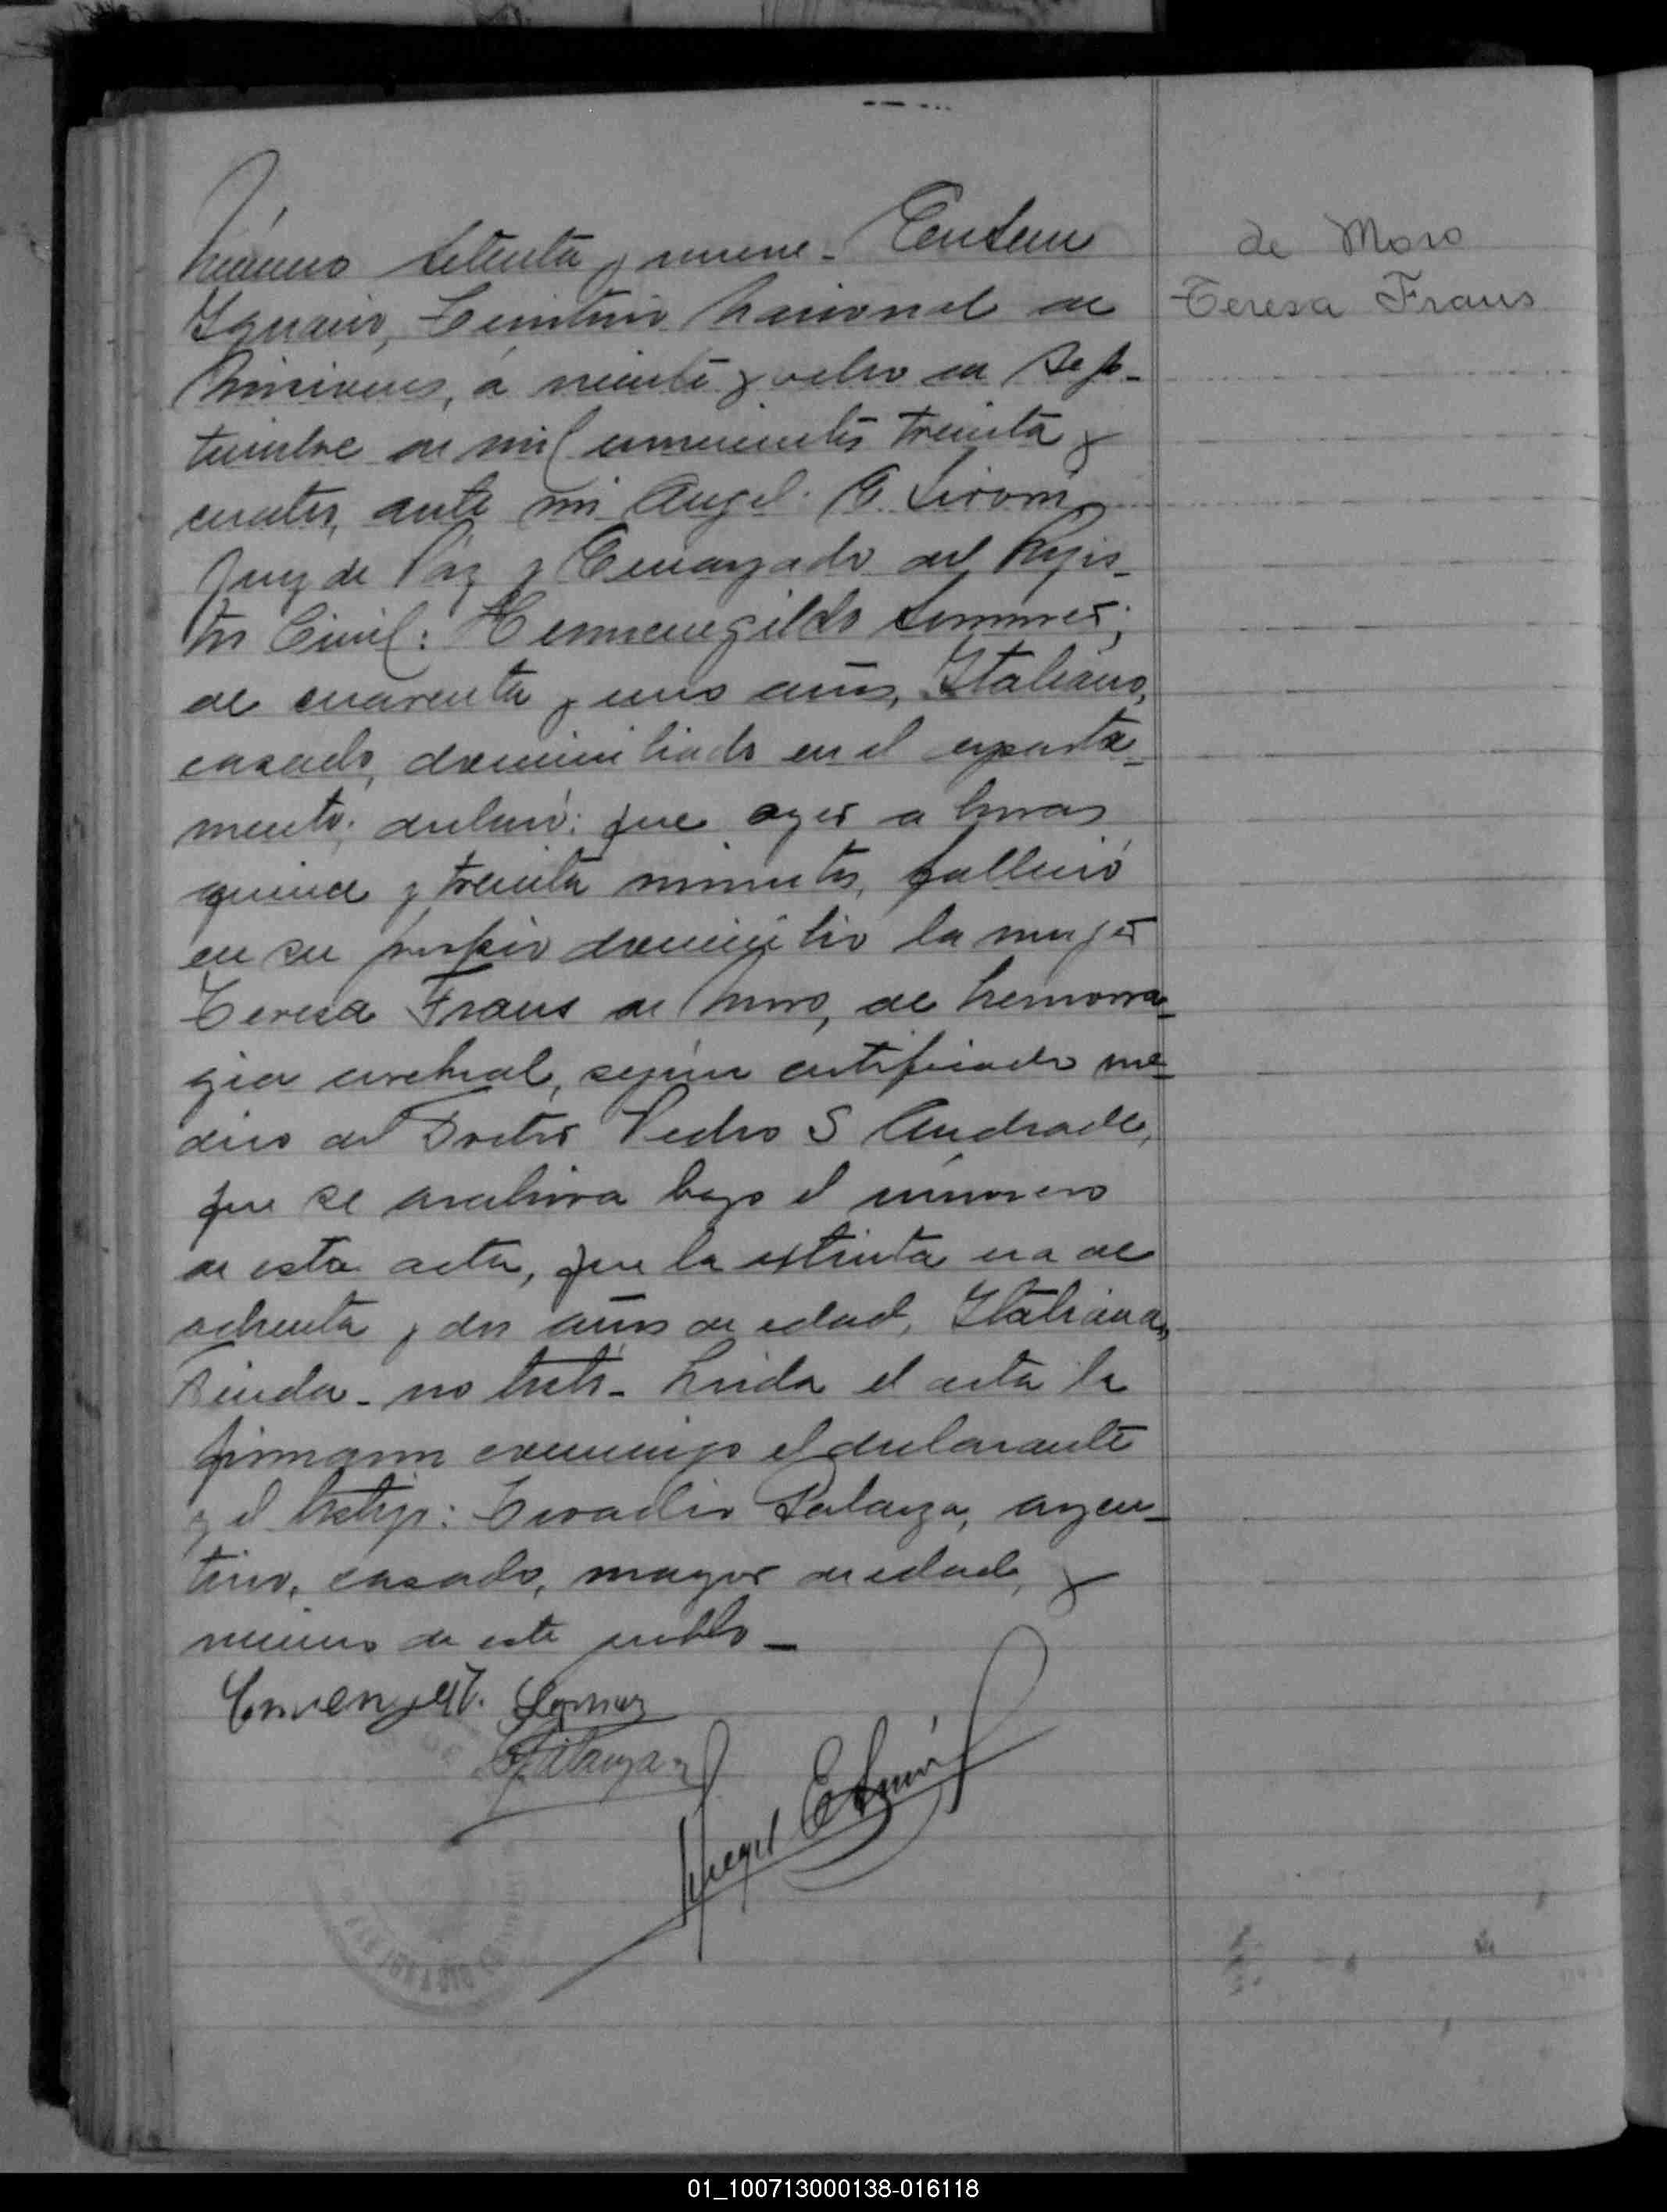 Número setenta y nueve. En San
de Moro
Ignacio, Territorio Nacional de
Teresa Fraus
Misiones, á veinte y ocho de Sep-
tiembre de mil novecientos treinta y
cuatro, ante mi Angel E.
Juez de Paz y Encargado del Regis-
tro Civil: Hermenegildo
de cuarenta y uno años, Italiano,
casado, domiciliado en el departa-
mento; declaró: que ayer a horas
quince y treinta minutos, falleció
en su propio domicilio la mujer
Teresa Fraus de Moro, de hemorra-
gia cerebral, según certificado mé-
dico del Doctor Pedro S Andrade,
que se archiva bajo el número
de esta acta, que la extinta era de
ochenta y dos años de edad, Italiana,
Viuda - no testó - Leída el acta la
firmaron conmigo el declarante
y el testigo: argen-
tino, casado, mayor de edad, y
vecino de este pueblo -
Angel E
SAN IGNACIO
01_100713000138-016118